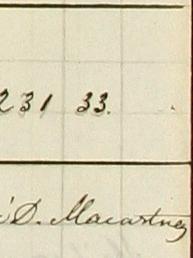 231 33.
D. Macartney